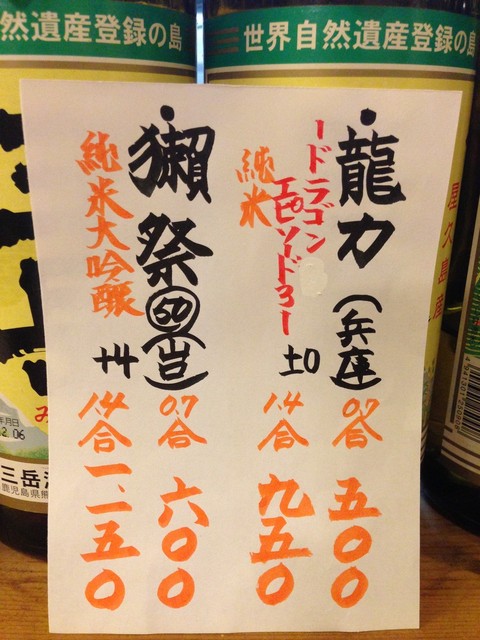 世界自然遺産登録の島
然遺産登録の島
・龍力(兵庫)
ードラゴン
エピソード3ー
純米
±0
0.7合 五〇〇
1.4合 九五〇
・獺祭㊿(山口)
純米大吟醸
+4
0.7合 六〇〇
1.4合 一、一五〇
屋久島産
み
年月日
2.06
三岳
鹿児島県熊